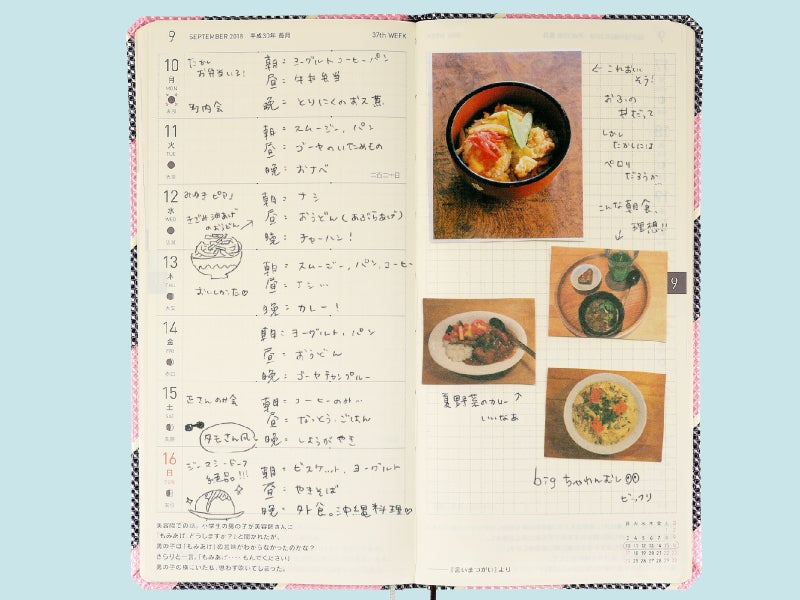 9 SEPTEMBER 2018 平成30年 長月 37th WEEK
10
月
MON
お弁当いる!
町内会
朝:ヨーグルト コーヒー パン
昼:牛丼弁当
晩:とりにくのおス煮
11
火
TUE
朝:スムージー、パン
昼:ゴーヤのいためもの
晩:おナベ
二百二十日
12
水
WED
みゆき ピアノ
きざみ油あげ
のおうどん
朝:ナシ
昼:おうどん(あぶらあげ)
晩:チャーハン!
13
木
THU
おいしかった♡
朝:スムージー、パン、コーヒー
昼:ナシ…
晩:カレー!
14
金
FRI
朝:ヨーグルト、パン
昼:おうどん
晩:ゴーヤチャンプルー
15
土
SAT
正さんのみ会
タモさん風
朝:コーヒーのみ…
昼:なっとうごはん
晩:しょうがやき
16
日
SUN
絶品。!!!
朝:ビスケット、ヨーグルト
昼:やきそば
晩:外食。沖縄料理♡
美容院での話。小学生の男の子が美容師さんに
「もみあげ、どうしますか?」と聞かれたが、
男の子は「もみあげ」の意味がわからなかったのかな?
さらりと一言、「もみあげ‥‥もんでください」
男の子の横にいたも、思わず吹いてしまった。
← これおいしそう!
おふの
丼だって
しかし
たかしには
ペロリ
だろうが…
こんな朝食、
理想!!
↓
9
夏野菜のカレー ↑
いいなあ
big ちゃわんむし
ビックリ
月 火 水 木 金 土 日
1 2
3 4 5 6 7 8 9
10 11 12 13 14 15 16
17 18 19 20 21 22 23
24 25 26 27 28 29 30
──『言いまつがい』より